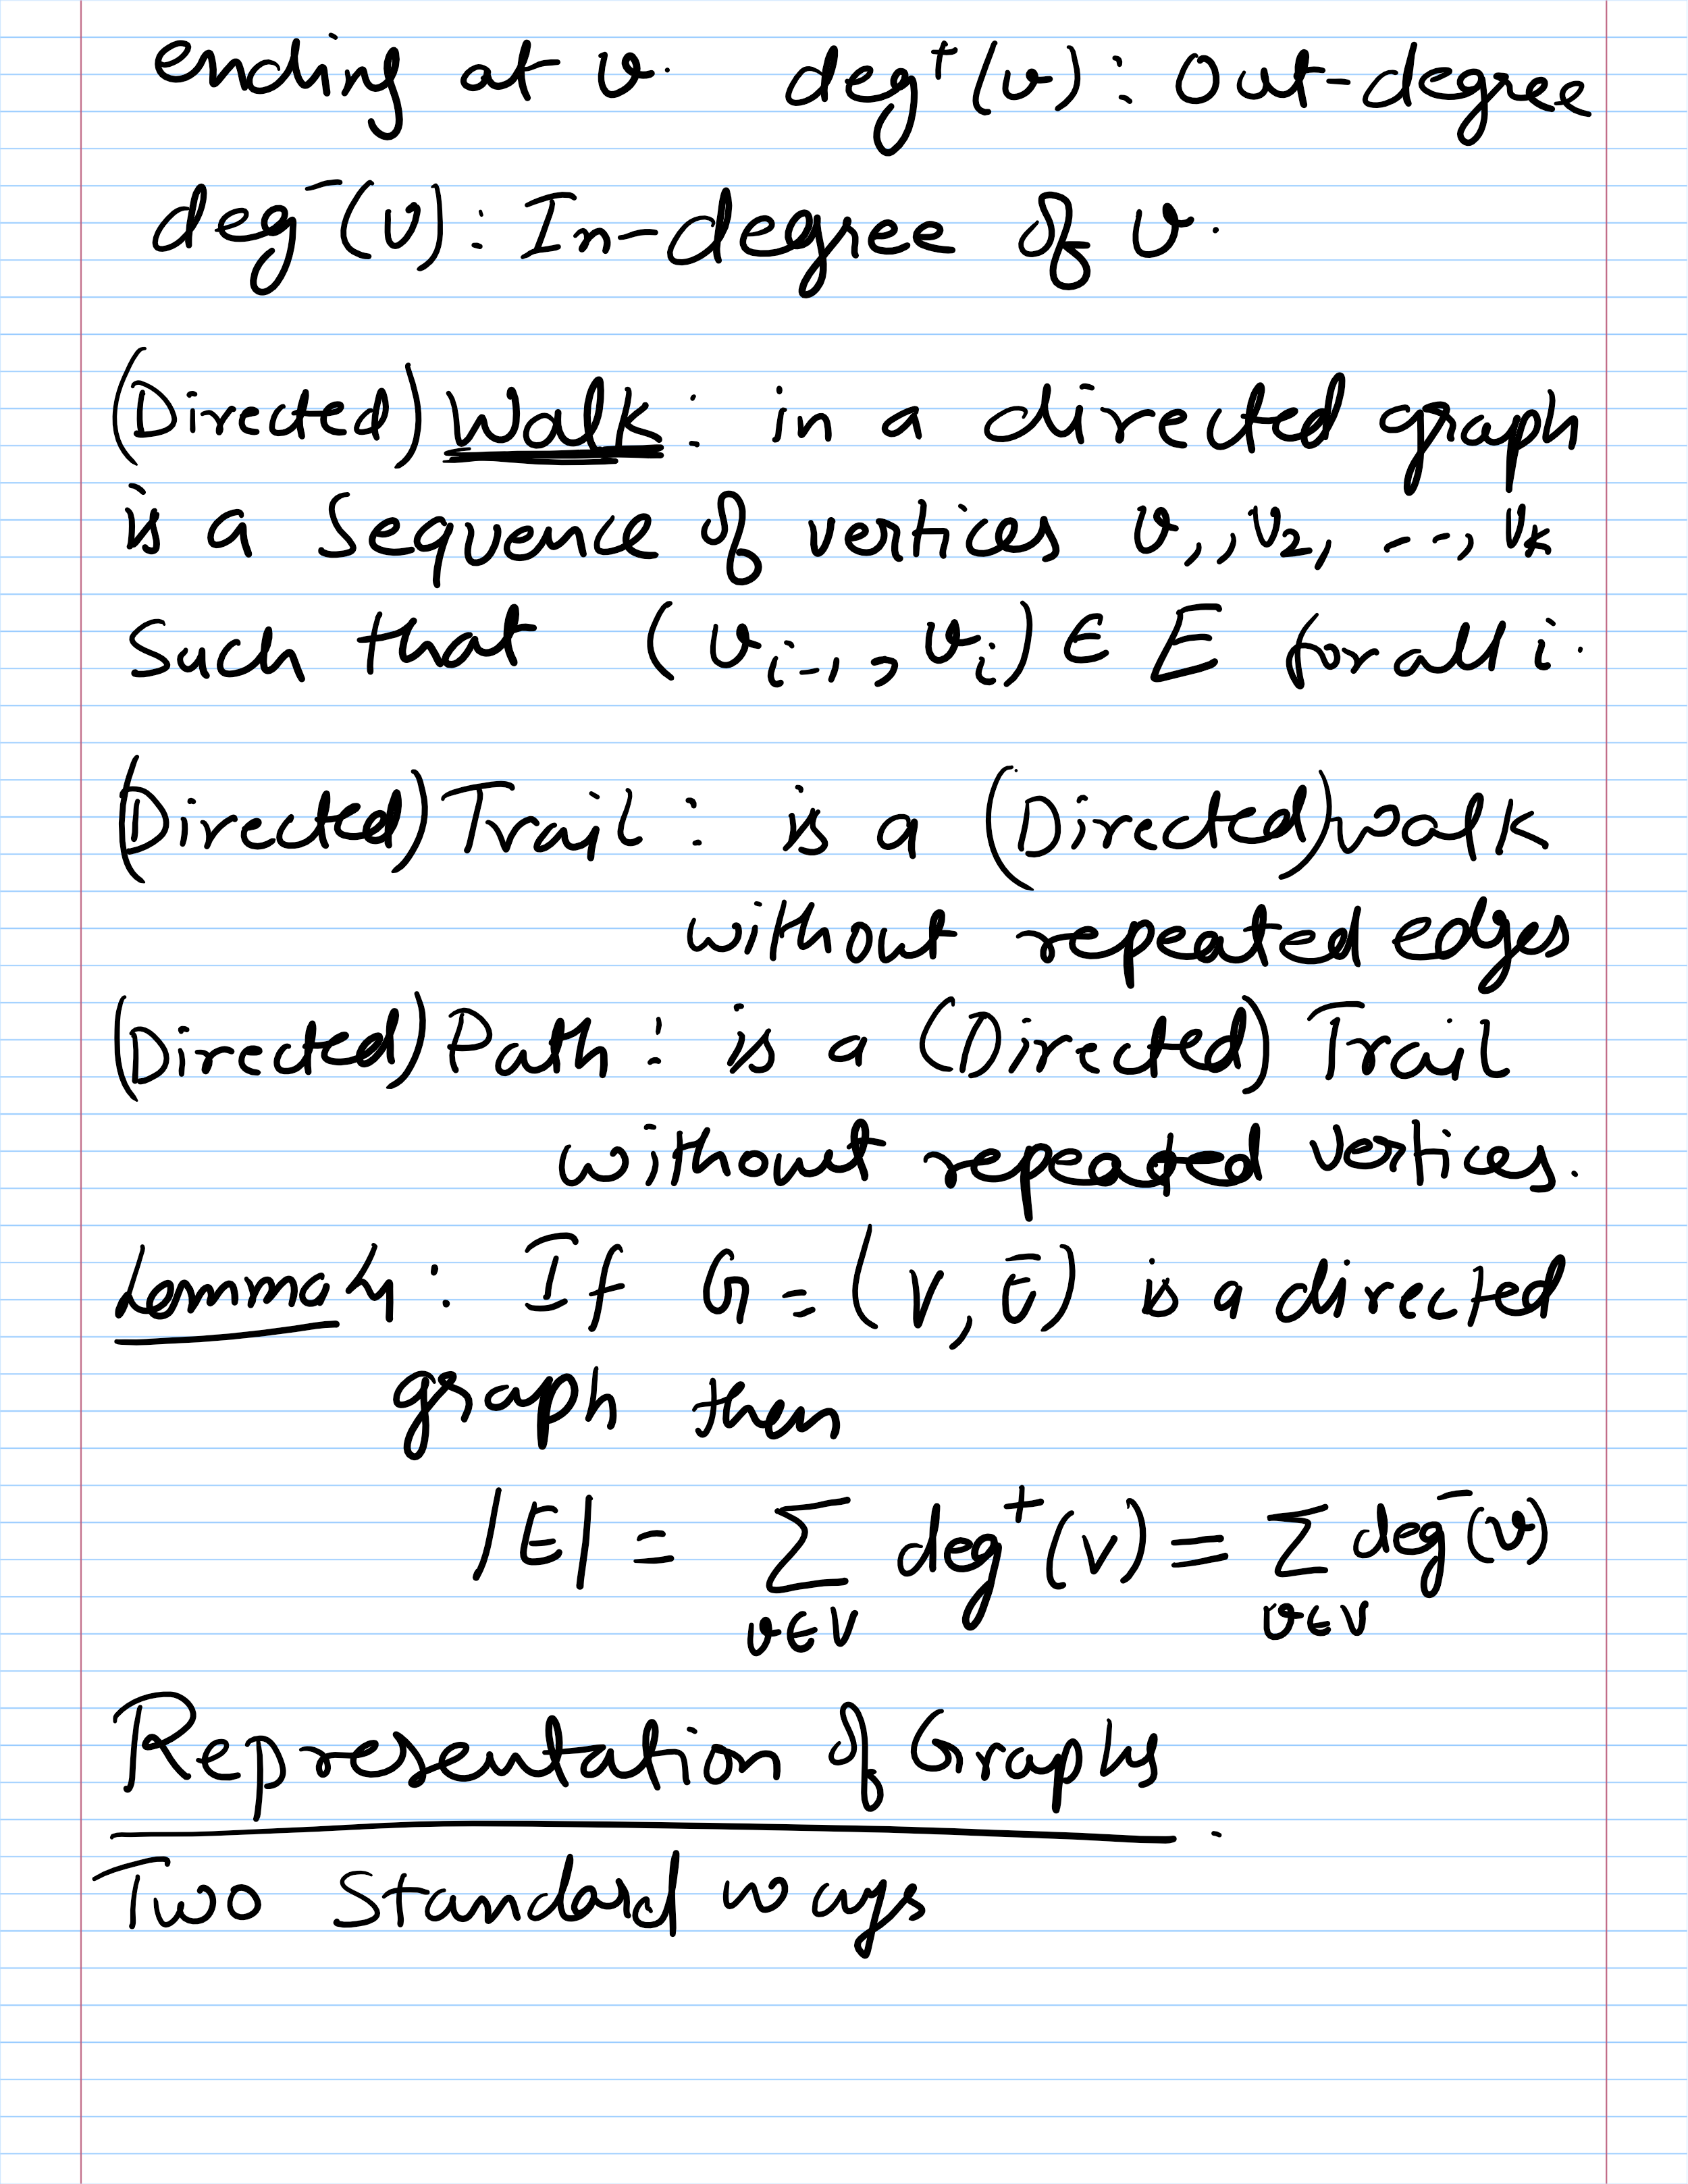 ending at v. deg⁺(v): Out-degree
deg⁻(v): In-degree of v.
(Directed) Walk: in a directed graph
is a Sequence of vertices v₁, v₂, ..., vₖ
Such that (vᵢ₋₁, vᵢ) ∈ E for all i.
(Directed) Trail: is a (Directed) walk
without repeated edges
(Directed) Path: is a (Directed) Trail
without repeated vertices.
: If G = (V, E) is a directed
graph then
|E| = ∑ deg⁺(v) = ∑ deg⁻(v)
v∈V v∈V
Representation of Graphs.
Two Standard ways